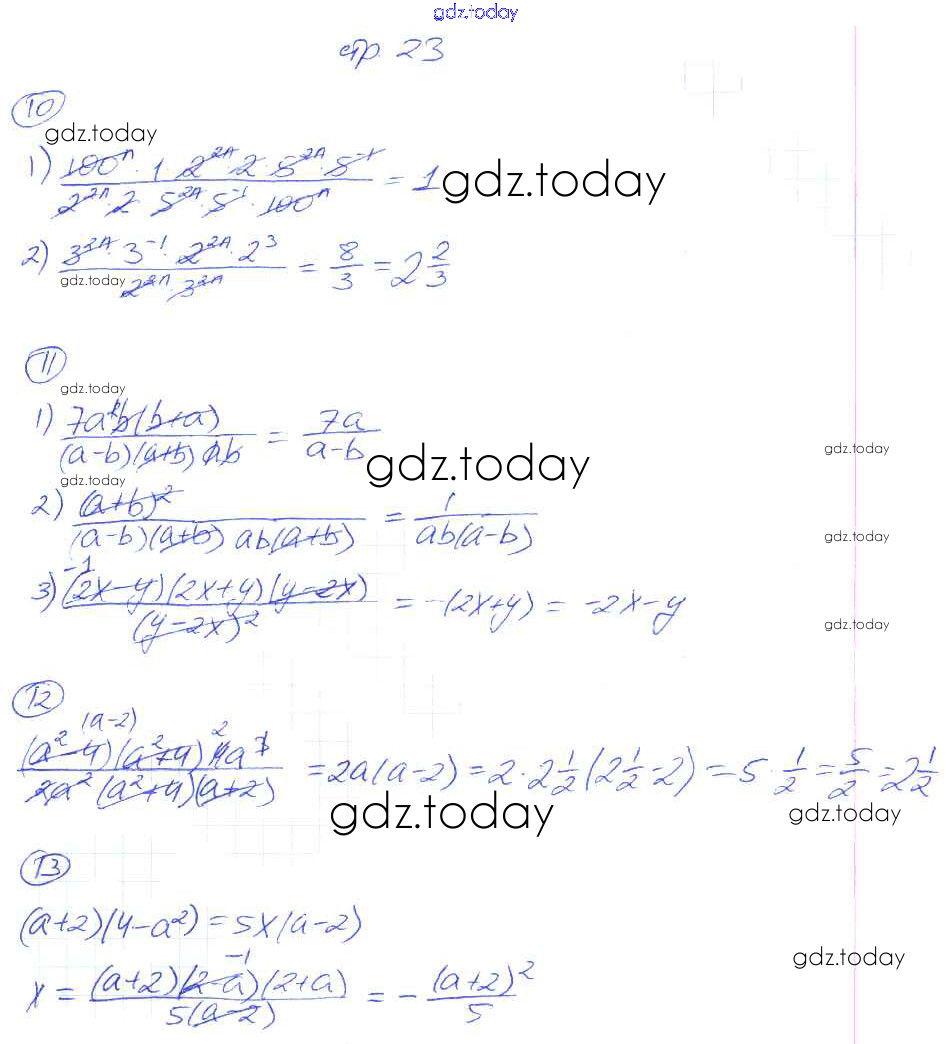 gdz.today
стр. 23
10
gdz.today
1) (100ⁿ · 1 · 2²ⁿ · 2 · 5²ⁿ · 5⁻¹)/(2²ⁿ · 2 · 5²ⁿ · 5⁻¹ · 100ⁿ) = 1 gdz.today
2) (3²ⁿ · 3⁻¹ · 2²ⁿ · 2³)/(2²ⁿ · 3²ⁿ) = 8/3 = 2 2/3
gdz.today
11
gdz.today
1) (7a²b(b+a))/((a-b)(a+b) ab) = 7a/(a-b)
gdz.today gdz.today
gdz.today
2) (a+b)²/((a-b)(a+b) ab(a+b)) = 1/(ab(a-b))
gdz.today
-1
3) ((2x-y)(2x+y)(y-2x))/(y-2x)² = -(2x+y) = -2x-y
gdz.today
12
(a-2) 2
((a²-4)(a²+4) 4a³)/(2a²(a²+4)(a+2)) = 2a(a-2) = 2 · 2 1/2 (2 1/2 - 2) = 5 · 1/2 = 5/2 = 2 1/2
gdz.today gdz.today
13
(a+2)(4-a²) = 5x(a-2)
gdz.today
-1
x = ((a+2)(2-a)(2+a))/(5(a-2)) = - (a+2)²/5